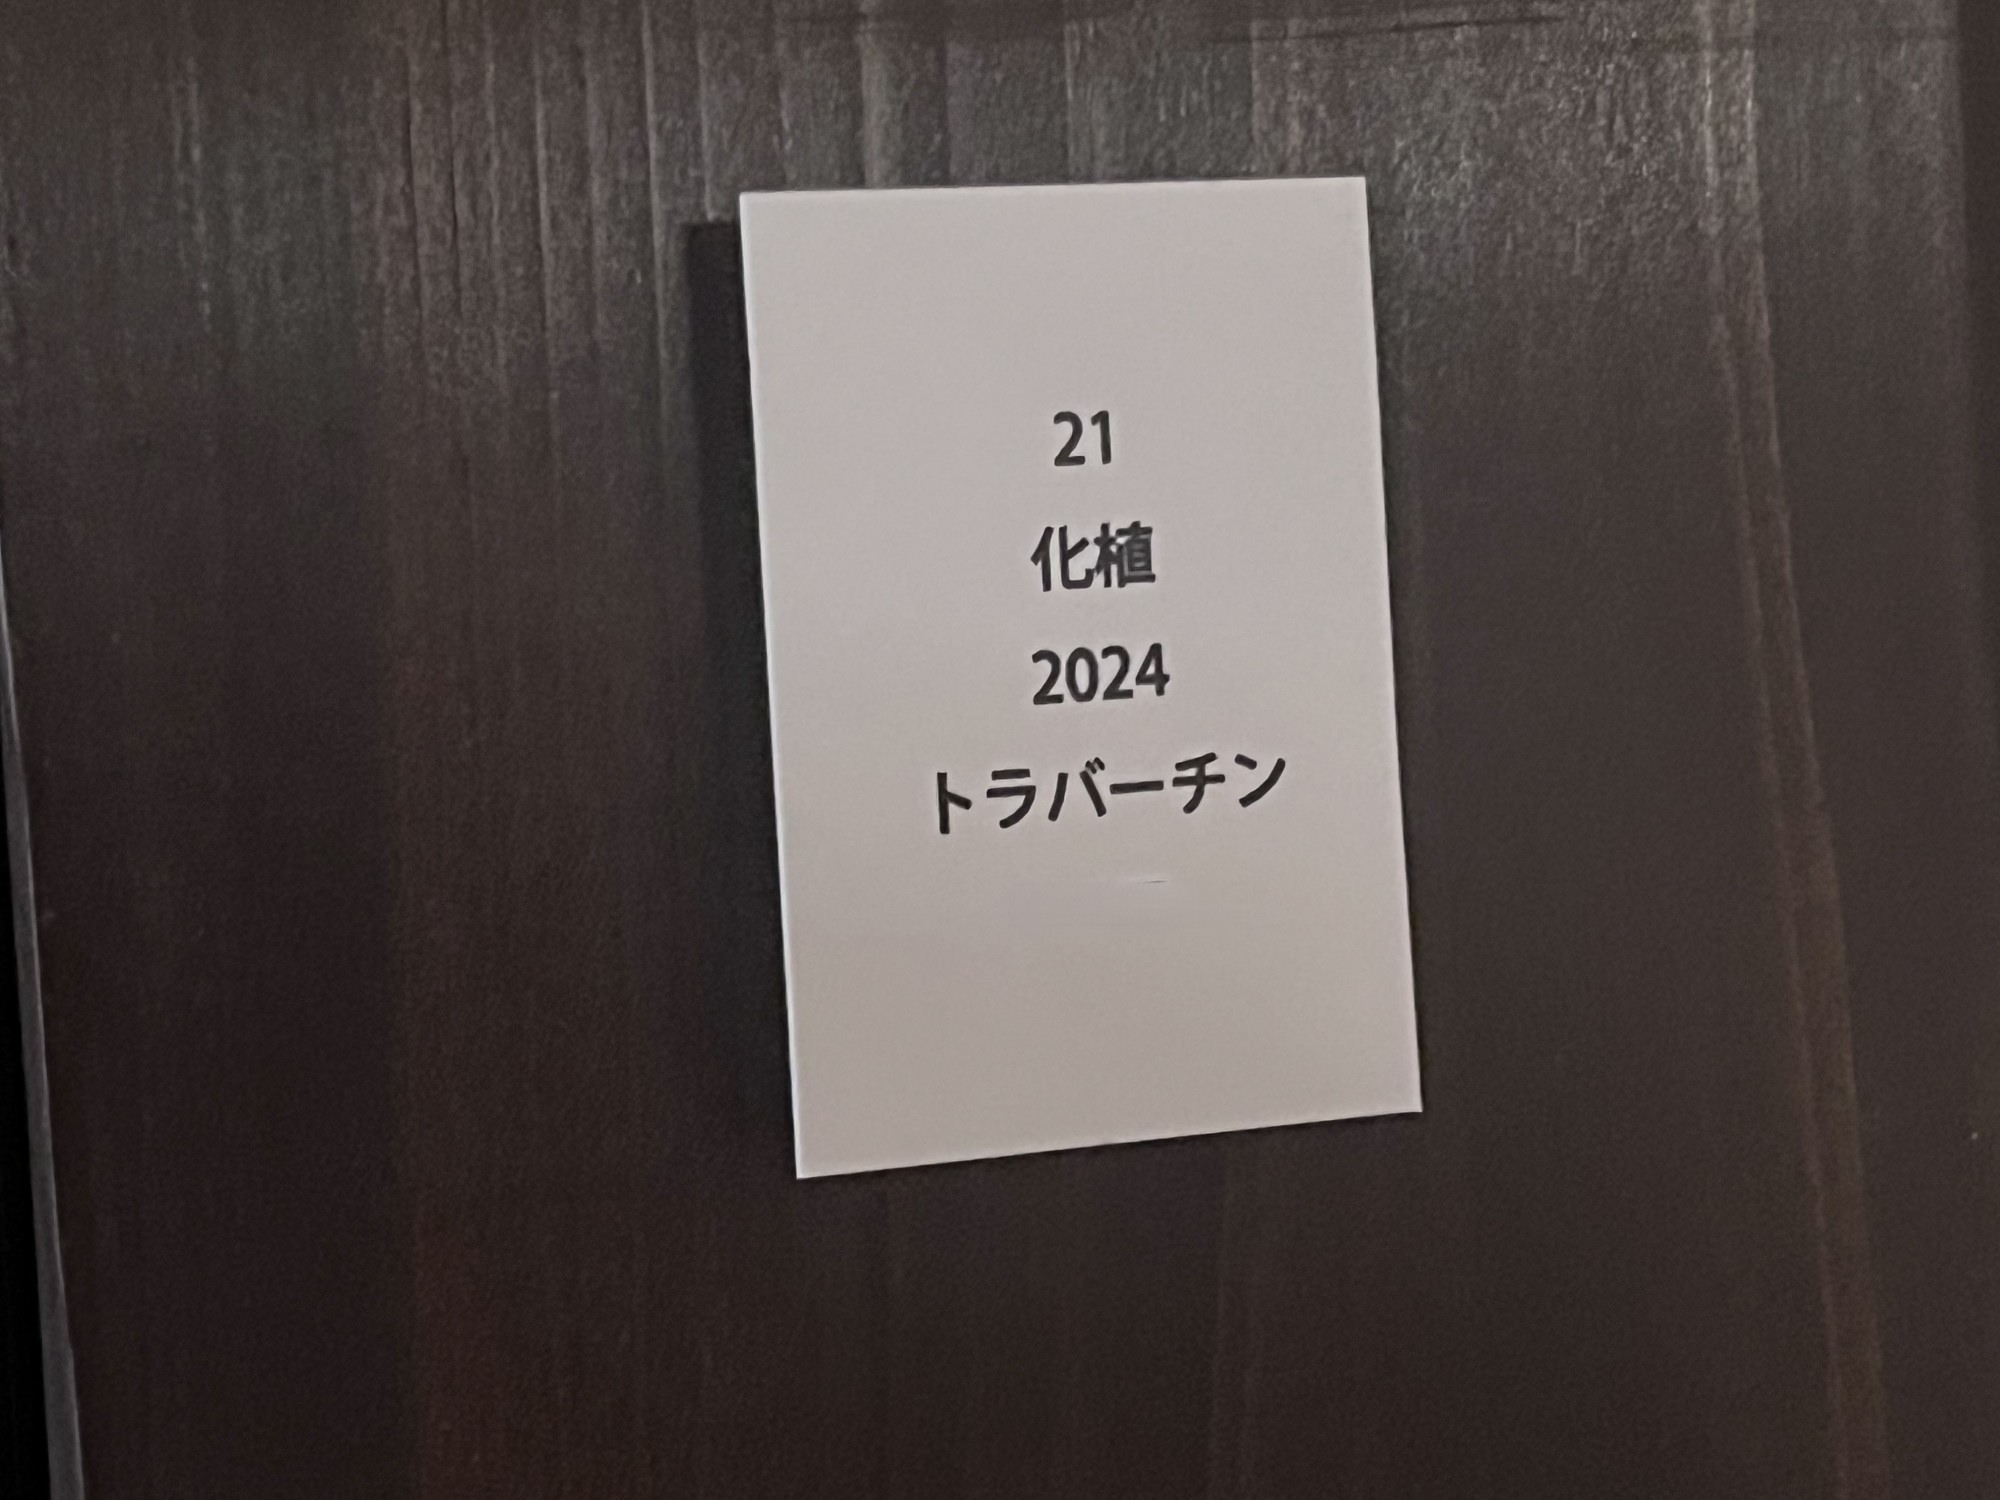 21
化植
2024
トラバーチン